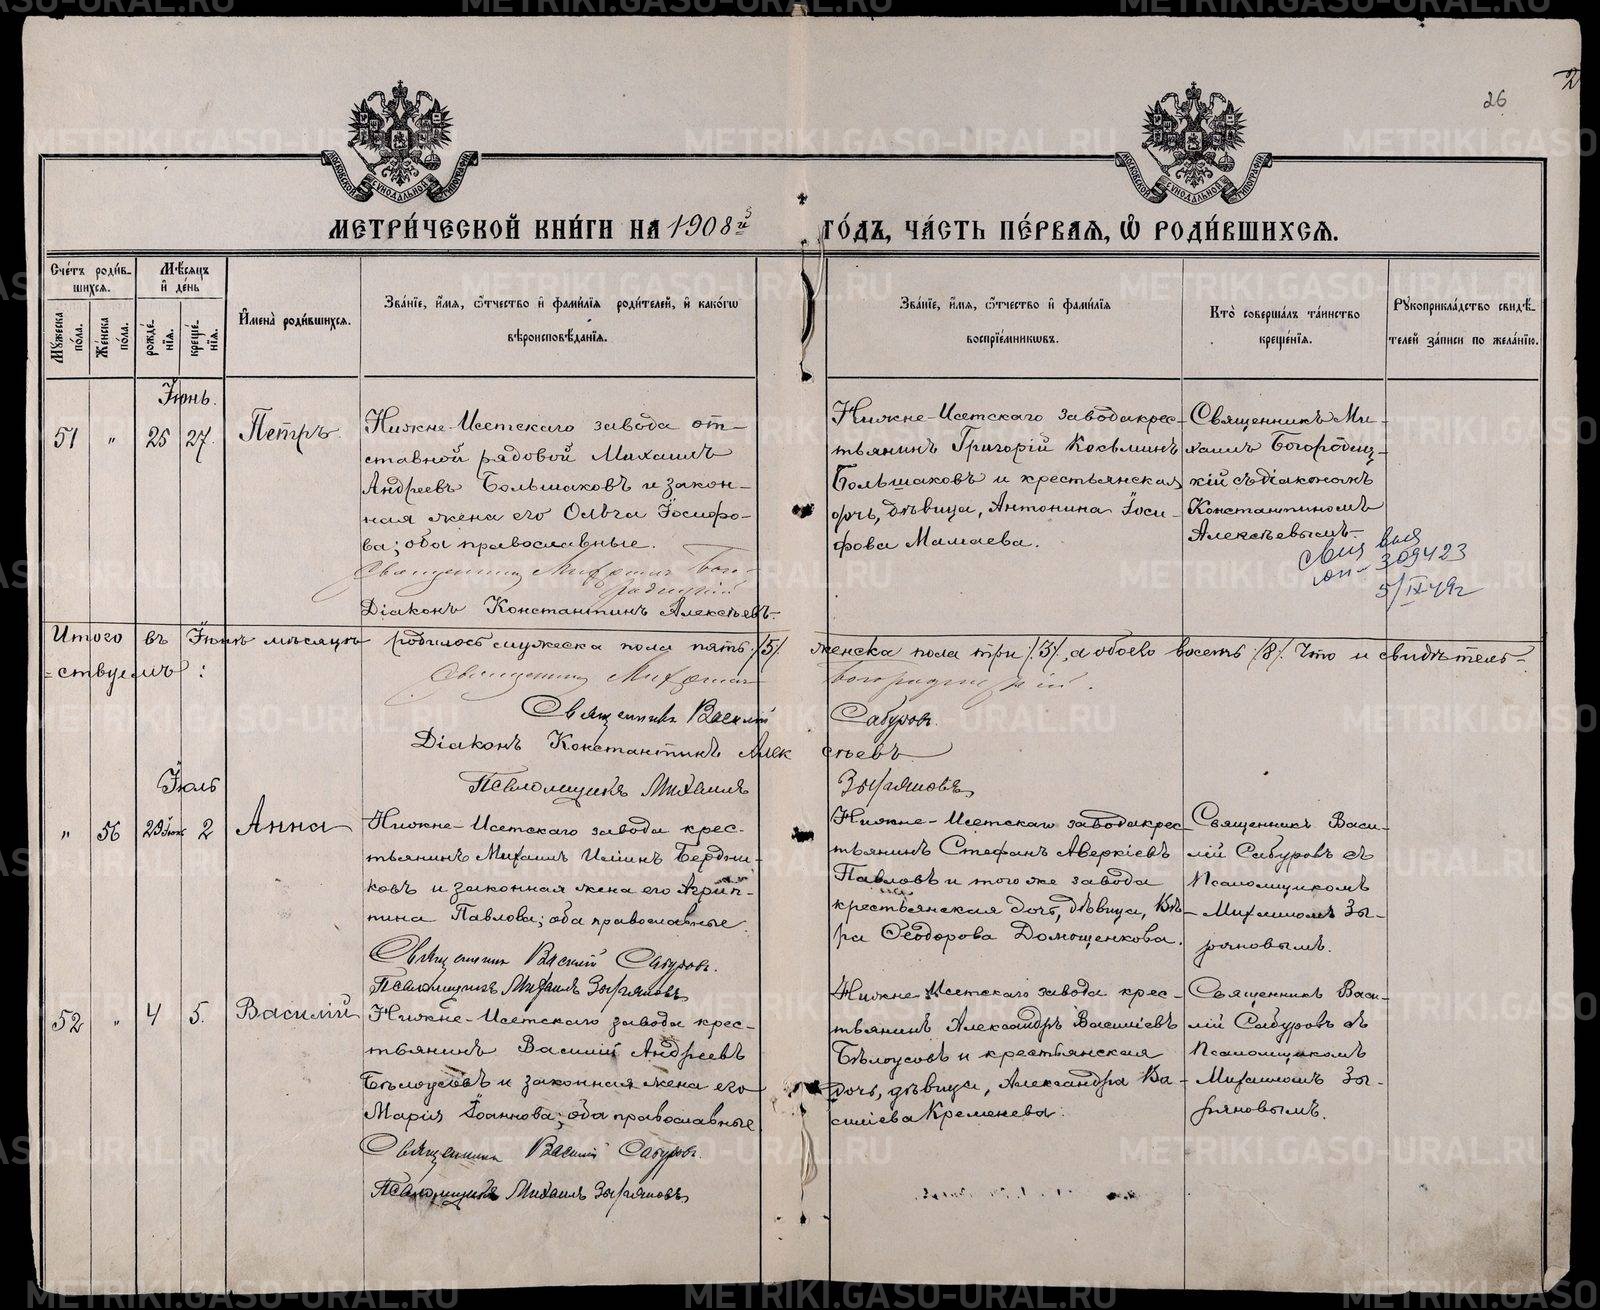 26
МОСКОВСКОЙ СѴНОДАЛЬНОЙ ТИПОГРАФІИ
МОСКОВСКОЙ СѴНОДАЛЬНОЙ ТИПОГРАФІИ
МЕТРИ́ЧЕСКОЙ КНИ́ГИ НА 1908й ГО́ДЪ, ЧА́СТЬ ПЕ́РВАѦ, Ѽ РОДИ́ВШИХСѦ.
Сче́тъ роди́в-
шихсѧ.
Мꙋжеска по́ла.
Же́нска по́ла.
Мѣ́сѧцъ и҆ де́нь
рожде́-нїѧ.
креще́-нїѧ.
И҆мена̀ роди́вшихсѧ.
Зва́нїе, и҆́мѧ, ѻ҆́тчество и҆ фами́лїѧ роди́телей, и҆ како́гѡ
вѣроисповѣ́данїѧ.
Зва́нїе, и҆́мѧ, ѻ҆́тчество и҆ фами́лїѧ
воспрїе́мникѡвъ.
Кто̀ соверша́лъ та́инство
креще́нїѧ.
Рꙋкоприкла́дство свидѣ́-
телей за́писи по жела́нїю.
Іюнь.
51 " 25 27. Петръ.
Нижне-Исетскаго завода от-
ставной рядовой Михаилъ
Андреевъ Большаковъ и закон-
ная жена его Ольга Іосифо-
ва; оба православные.
Священникъ Михаилъ Бого-
родицкій
Діаконъ Константинъ Алексѣевъ.
Нижне-Исетскаго завода крес-
тьянинъ Григорій Косьминъ
Большаковъ и крестьянская
дочь, дѣвица, Антонина Іоси-
фова Мамаева.
Священникъ Ми-
хаилъ Богородиц-
кій съ діакономъ
Константиномъ
Алексѣевымъ.
309423
5/IX 49г
Итого въ Іюнѣ мѣсяцѣ родилось мужеска пола пять /5/ женска пола три /3/, а обоего восемь /8/. Что и свидѣтель-
=ствуемъ:
Священникъ Михаилъ Богородицкій.
Священникъ Василій Сабуровъ.
Діаконъ Константинъ Алексѣевъ
Псаломщикъ Михаилъ Зыряновъ
Іюль
" 56 29 Іюня 2 Анна
Нижне-Исетскаго завода крес-
тьянинъ Михаилъ Иліинъ Бердни-
ковъ и законная жена его Агрип-
пина Павлова; оба православные.
Священникъ Василій Сабуровъ.
Псаломщикъ Михаилъ Зыряновъ
Нижне-Исетскаго завода крес-
тьянинъ Стефанъ Аверкіевъ
Павловъ и того же завода
крестьянская дочь, дѣвица, Вѣ-
ра Ѳеодорова Домощенкова.
Священникъ Васи-
лій Сабуровъ съ
Псаломщикомъ
Михаиломъ Зы-
ряновымъ.
52 " 4 5. Василій
Нижне-Исетскаго завода крес-
тьянинъ Василій Андреевъ
Бѣлоусовъ и законная жена его
Марія Іоаннова; оба православные
Священникъ Василій Сабуровъ.
Псаломщикъ Михаилъ Зыряновъ
Нижне-Исетскаго завода крес-
тьянинъ Александръ Василіевъ
Бѣлоусовъ и крестьянская
дочь, дѣвица, Александра Ва-
силіева Кременева.
Священникъ Васи-
лій Сабуровъ съ
Псаломщикомъ
Михаиломъ Зы-
ряновымъ.
METRIKI.GASO-URAL.RU